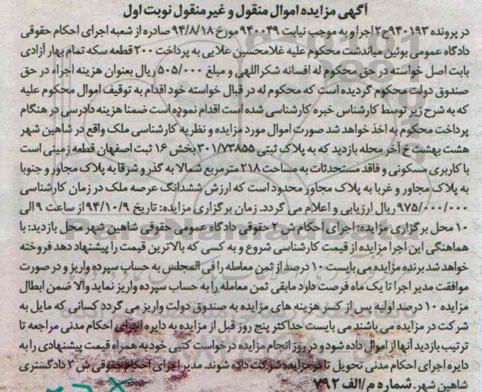 آگهی مزایده اموال منقول و غیر منقول نوبت اول
در پرونده ۹۴۰۱۹۳ج۲ اجرا و به موجب نیابت ۹۴۰۰۴۹ مورخ ۹۴/۸/۱۸ صادره از شعبه اجرای احکام حقوقی
دادگاه عمومی بوئین میاندشت محکوم علیه غلامحسین علایی به پرداخت ۲۰۰ قطعه سکه تمام بهار آزادی
بابت اصل خواسته در حق محکوم له افسانه شکراللهی و مبلغ ۵۰۵/۰۰۰ ریال بعنوان هزینه اجراء در حق
صندوق دولت محکوم گردیده است که محکوم له در قبال خواسته خود اقدام به توقیف اموال محکوم علیه
که به شرح زیر توسط کارشناس خبره کارشناسی شده است اقدام نموده است ضمنا هزینه دادرسی در هنگام
پرداخت محکوم به اخذ خواهد شد صورت اموال مورد مزایده و نظریه کارشناسی ملک واقع در شاهین شهر
هشت بهشت خ آخر محله بازدید که به پلاک ثبتی ۳۰۱/۷۳۸۵۵ بخش ۱۶ ثبت اصفهان قطعه زمینی است
با کاربری مسکونی و فاقد مستحدثات به مساحت ۲۱۸ مترمربع شمالا به گذر و شرقا به پلاک مجاور و جنوبا
به پلاک مجاور و غربا به پلاک مجاور محدود است که ارزش ششدانگ عرصه ملک در زمان کارشناسی
۹۷۵/۰۰۰/۰۰۰ ریال ارزیابی و اعلام می گردد. زمان برگزاری مزایده: تاریخ ۹۴/۱۰/۹ از ساعت ۹ الی
۱۰ محل برگزاری مزایده: اجرای احکام ش ۲ حقوقی دادگاه عمومی حقوقی شاهین شهر محل بازدید: با
هماهنگی این اجرا مزایده از قیمت کارشناسی شروع و به کسی که بالاترین قیمت را پیشنهاد دهد فروخته
خواهد شد برنده مزایده می بایست ۱۰ درصد از ثمن معامله را فی المجلس به حساب سپرده واریز و در صورت
موافقت مدیر اجرا تا یک ماه فرصت دارد مابقی ثمن معامله را به حساب سپرده واریز نماید والا ضمن ابطال
مزایده ۱۰ درصد اولیه پس از کسر هزینه های مزایده به صندوق دولت واریز می گردد کسانی که مایل به
شرکت در مزایده می باشند می بایست حداکثر پنج روز قبل از مزایده به دایره اجرای احکام مدنی مراجعه تا
ترتیب بازدید آنها از اموال داده شود و در روز انجام مزایده درخواست کتبی خود به همراه قیمت پیشنهادی را به
دایره اجرای احکام مدنی تحویل تا در مزایده شرکت داده شوند. مدیر اجرای احکام حقوقی ش ۲ دادگستری
شاهین شهر. شماره م/الف ۷۹۲